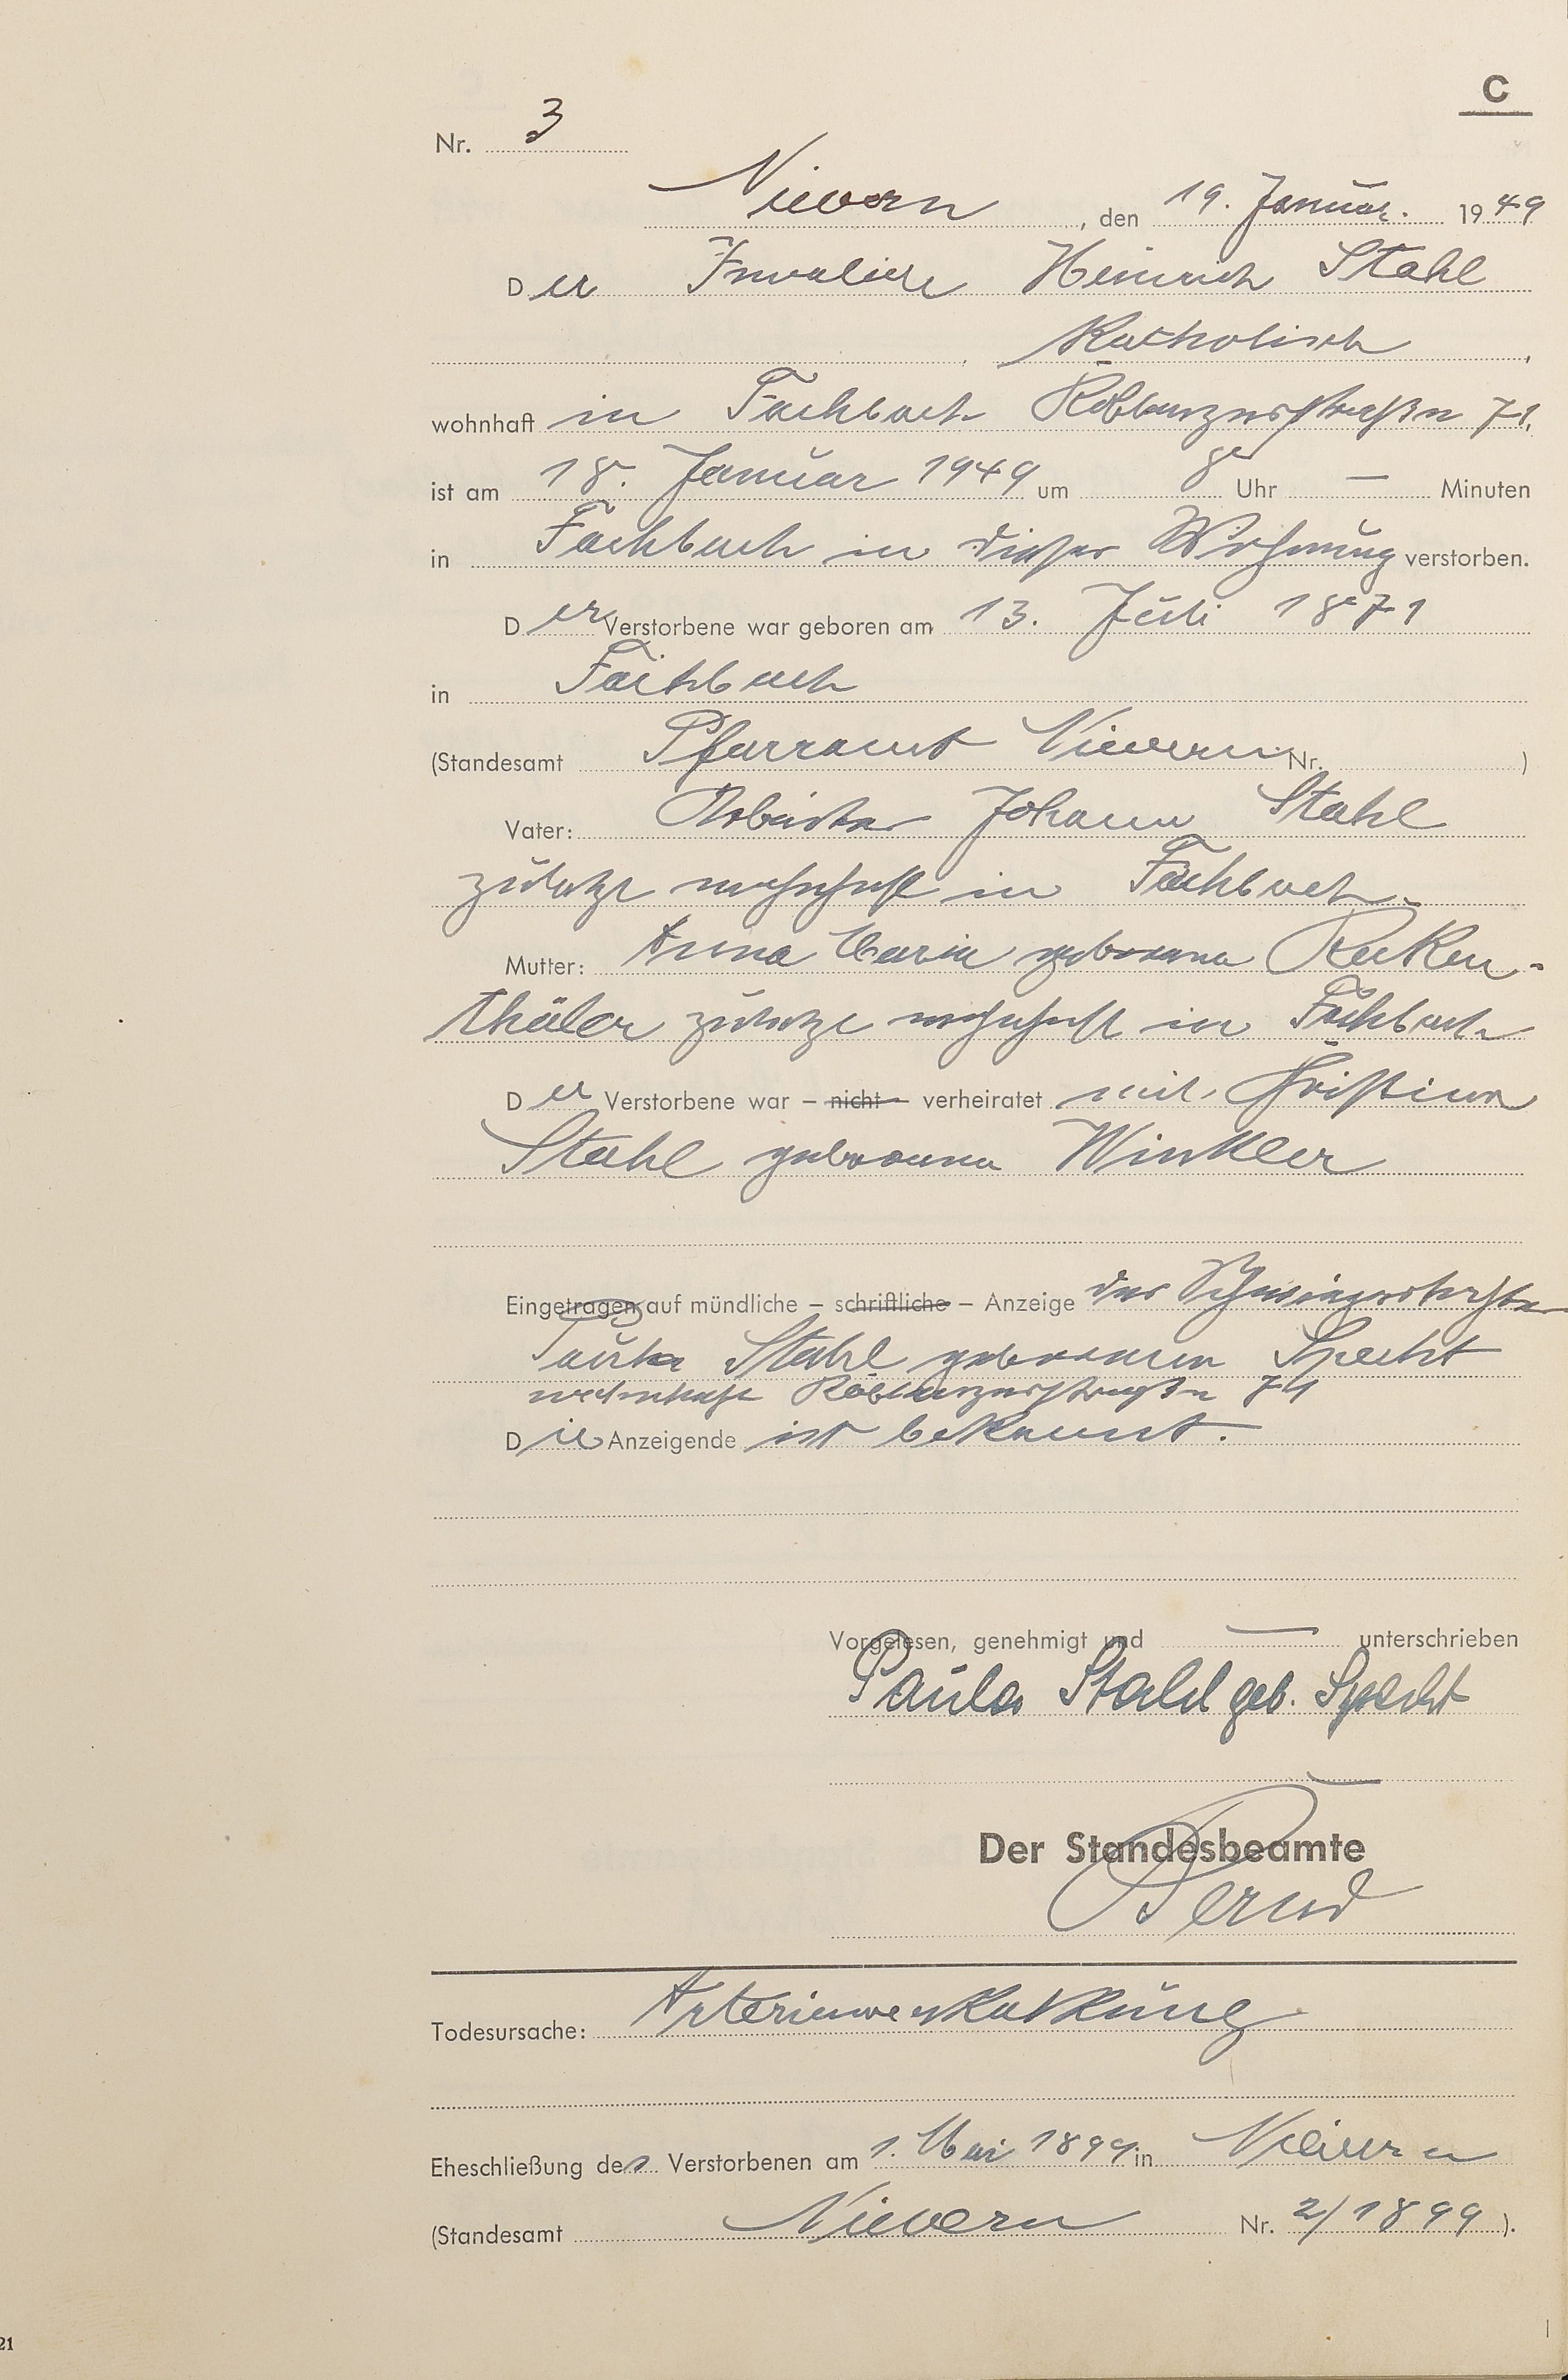 C
Nr. 3
Nievern, den 19. Januar. 1949
Der Invalide Heinrich Stahl
Katholisch,
wohnhaft in Fachbach Koblenzerstraße 71,
ist am 18. Januar 1949 um 8 Uhr — Minuten
in Fachbach in dieser Wohnung verstorben.
Der Verstorbene war geboren am 13. Juli 1871
in Fachbach
(Standesamt Pfarramt Nievern Nr. )
Vater: Arbeiter Johann Stahl
zuletzt wohnhaft in Fachbach.
Mutter: Anna Maria geborene Recken-
thäler zuletzt wohnhaft in Fachbach
Der Verstorbene war – nicht – verheiratet mit Christina
Stahl geborene Winkler
Eingetragen auf mündliche – schriftliche – Anzeige der Schwiegertochter
Paula Stahl geborenen Specht
wohnhaft Koblenzerstraße 71
Die Anzeigende ist bekannt.
Vorgelesen, genehmigt und — unterschrieben
Paula Stahl geb. Specht
Der Standesbeamte
Todesursache: Arterienverkalkung
Eheschließung des Verstorbenen am 1. Mai 1899 in Nievern
(Standesamt Nievern Nr. 2/1899).
21